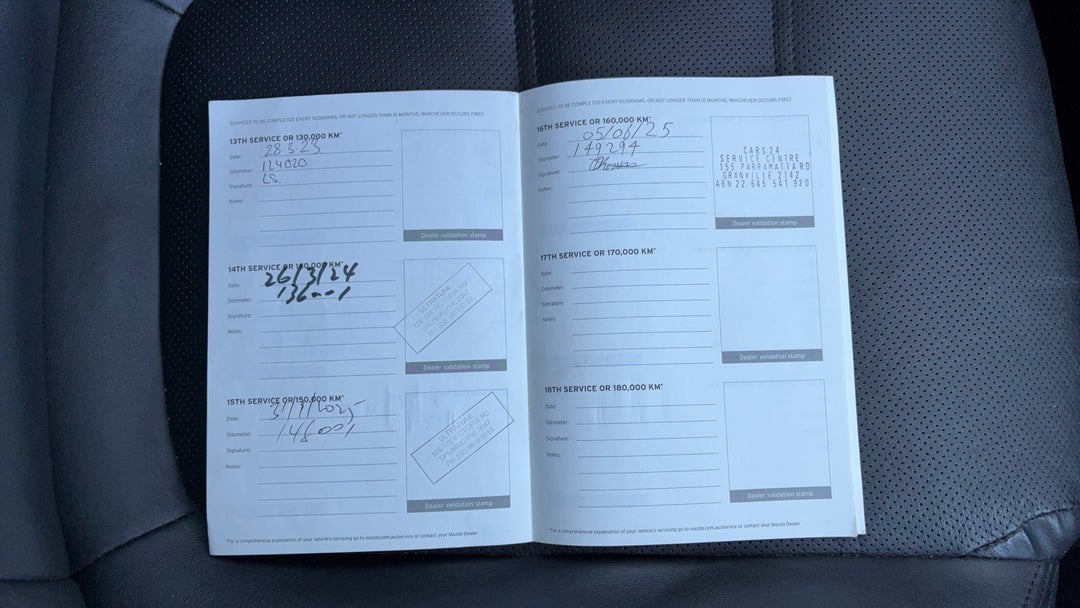 SERVICES TO BE COMPLETED EVERY 10,000KMS, OR NOT LONGER THAN 12 MONTHS, WHICHEVER OCCURS FIRST
13TH SERVICE OR 130,000 KM*
Date: 28.3.23
Odometer: 124020
Signature: LS.
Notes:
Dealer validation stamp
14TH SERVICE OR 140,000 KM*
Date: 26/3/24
Odometer: 136001
Signature:
Notes:
ULTRATUNE
126-128 VICTORIA RD
DRUMMOYNE 2047
PH: (02) 9819 6033
Dealer validation stamp
15TH SERVICE OR 150,000 KM*
Date:
Odometer: 148001
Signature:
Notes:
ULTRATUNE
126-128 VICTORIA RD
DRUMMOYNE 2047
PH: (02) 9819 6033
Dealer validation stamp
*For a comprehensive explanation of your vehicle's servicing go to mazda.com.au/service or contact your Mazda Dealer
SERVICES TO BE COMPLETED EVERY 10,000KMS, OR NOT LONGER THAN 12 MONTHS, WHICHEVER OCCURS FIRST
16TH SERVICE OR 160,000 KM*
Date: 05/06/25
Odometer: 149294
Signature:
Notes:
CARS24
SERVICE CENTRE
155 PARRAMATTA RD
GRANVILLE 2142
ABN 22 645 541 920
Dealer validation stamp
17TH SERVICE OR 170,000 KM*
Date:
Odometer:
Signature:
Notes:
Dealer validation stamp
18TH SERVICE OR 180,000 KM*
Date:
Odometer:
Signature:
Notes:
Dealer validation stamp
*For a comprehensive explanation of your vehicle's servicing go to mazda.com.au/service or contact your Mazda Dealer